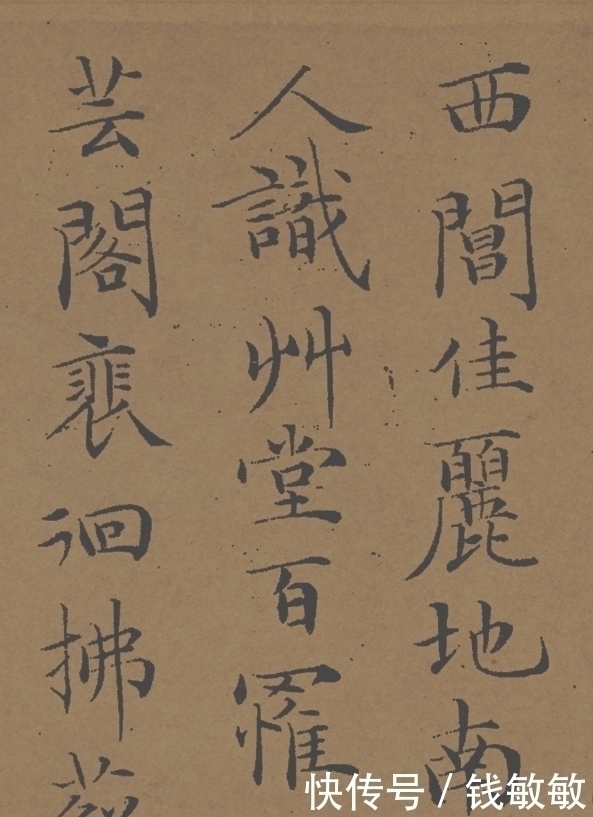 西閶佳麗地南
人識艸堂百罹
芸閣裵徊拂蒼
快传号 / 钱敏敏